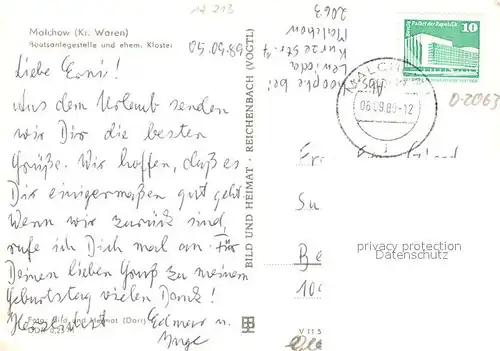 12 213
Malchow (Kr. Waren)
Bootsanlegestelle und ehem. Kloster
Liebe Erni!
Aus dem Urlaub senden
wir Dir die besten
Grüße. Wir hoffen, daß es
Dir einigermaßen gut geht.
Wenn wir zurück sind,
rufe ich Dich mal an. Für
Deinen lieben Gruß zu meinem
Geburtstag vielen Dank!
Herzlichst Edmar u.
Inge
Foto: Bild und Heimat (Darr)
DDR 0,25 M
BILD UND HEIMAT · REICHENBACH (VOGTL)
bei
Kurze Str. 7
Malchow
2063
Palast der Republik
10
MALCHOW
2063
06.09.89-12
O-2063
Fr
Su
Be
10
privacy protection
Datenschutz
V 11 5